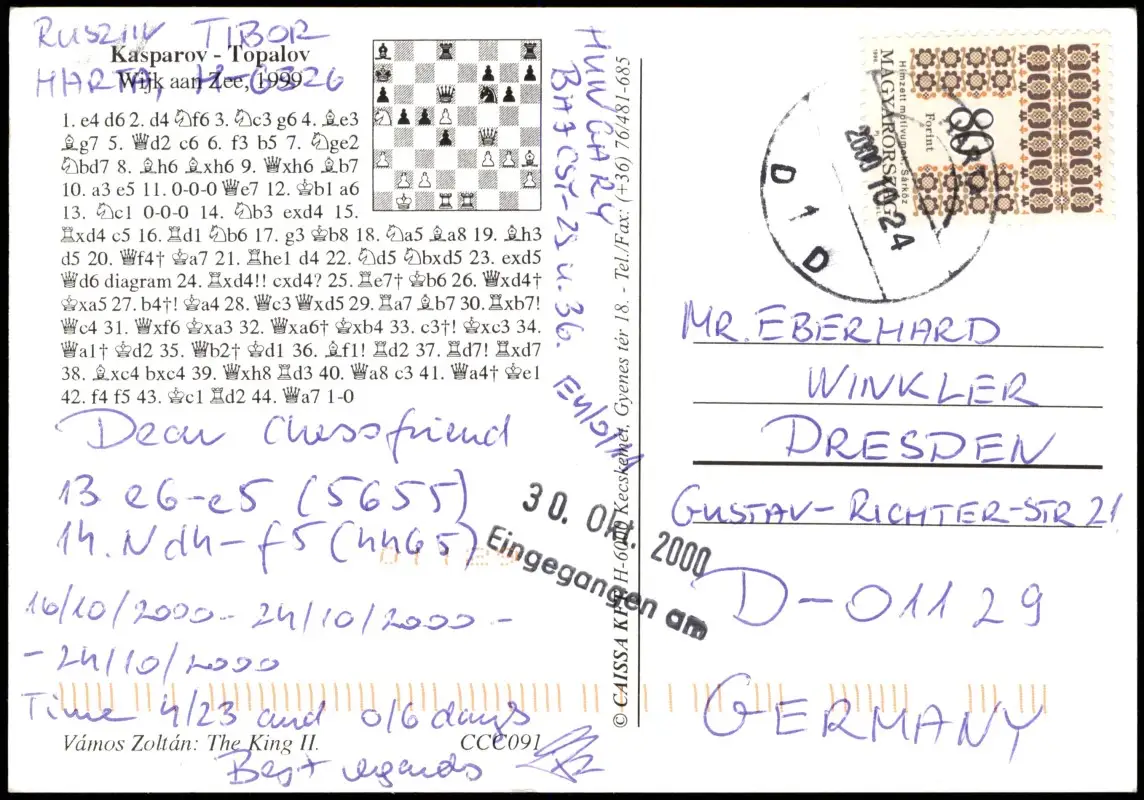 RUSZIN TIBOR
HARTA, H-6326
HUNGARY
Kasparov - Topalov
Wijk aan Zee, 1999
1. e4 d6 2. d4 ♘f6 3. ♘c3 g6 4. ♗e3
♗g7 5. ♕d2 c6 6. f3 b5 7. ♘ge2
♘bd7 8. ♗h6 ♗xh6 9. ♕xh6 ♗b7
10. a3 e5 11. 0-0-0 ♕e7 12. ♔b1 a6
13. ♘c1 0-0-0 14. ♘b3 exd4 15.
♖xd4 c5 16. ♖d1 ♘b6 17. g3 ♔b8 18. ♘a5 ♗a8 19. ♗h3
d5 20. ♕f4† ♔a7 21. ♖he1 d4 22. ♘d5 ♘bxd5 23. exd5
♕d6 diagram 24. ♖xd4!! cxd4? 25. ♖e7† ♔b6 26. ♕xd4†
♔xa5 27. b4†! ♔a4 28. ♕c3 ♕xd5 29. ♖a7 ♗b7 30. ♖xb7!
♕c4 31. ♕xf6 ♔xa3 32. ♕xa6† ♔xb4 33. c3†! ♔xc3 34.
♕a1† ♔d2 35. ♕b2† ♔d1 36. ♗f1! ♖d2 37. ♖d7! ♖xd7
38. ♗xc4 bxc4 39. ♕xh8 ♖d3 40. ♕a8 c3 41. ♕a4† ♔e1
42. f4 f5 43. ♔c1 ♖d2 44. ♕a7 1-0
Dear Chessfriend
13 e6-e5 (5655)
14. Nd4-f5 (4465)
16/10/2000 - 24/10/2000 -
- 24/10/2000
Time 4/23 and 0/6 days
Vámos Zoltán: The King II.
CCC091
Best regards
EU/
© CAISSA KFT H-6000 Kecskemét, Gyenes tér 18. - Tel./Fax: (+36) 76/481-685
30. Okt. 2000
Eingegangen am
01129
MAGYARORSZÁG
Hímzett motívumok, Sárköz
80
Forint
2000 10-24
D 1 D
MR. EBERHARD
WINKLER
DRESDEN
GUSTAV-RICHTER-STR 21
D-01129
GERMANY